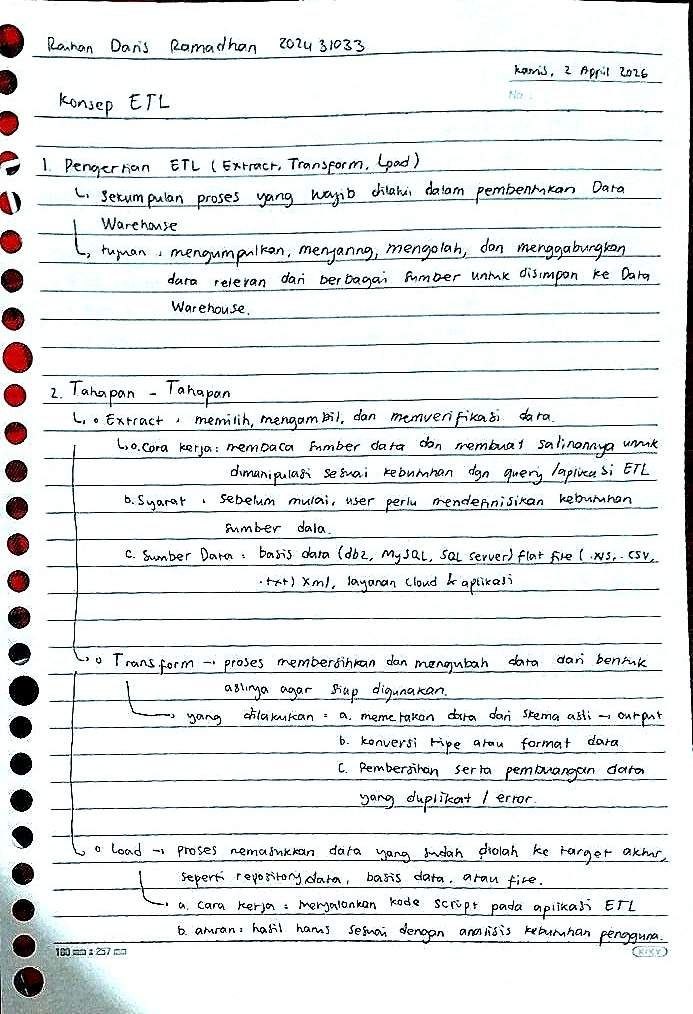 Raihan Daris Ramadhan 202431033
Kamis, 2 April 2026
No :
Konsep ETL
1. Pengertian ETL (Extract, Transform, Load)
↳ Sekumpulan proses yang wajib dilalui dalam pembentukan Data
Warehouse
↳ tujuan : mengumpulkan, menyaring, mengolah, dan menggabungkan
data relevan dari berbagai sumber untuk disimpan ke Data
Warehouse.
2. Tahapan - Tahapan
↳ o Extract : memilih, mengambil, dan memverifikasi data.
↳ a. Cara kerja : membaca sumber data dan membuat salinannya untuk
dimanipulasi sesuai kebutuhan dgn query / aplikasi ETL
b. Syarat : sebelum mulai, user perlu mendefinisikan kebutuhan
sumber data.
c. Sumber Data : basis data (db2, MySQL, SQL server) flat file (.xls, .csv,
.txt) Xml, layanan cloud & aplikasi
↳ o Transform → proses membersihkan dan mengubah data dari bentuk
aslinya agar siap digunakan.
→ yang dilakukan = a. memetakan data dari skema asli → output
b. konversi tipe atau format data
c. Pembersihan serta pembuangan data
yang duplikat / error.
↳ o Load → proses memasukkan data yang sudah diolah ke target akhir,
seperti repository data, basis data, atau file.
→ a. cara kerja : menjalankan kode script pada aplikasi ETL
b. aturan : hasil harus sesuai dengan analisis kebutuhan pengguna.
180 mm x 257 mm
KIKY